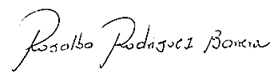 Rosalba Rodriguez Barrera